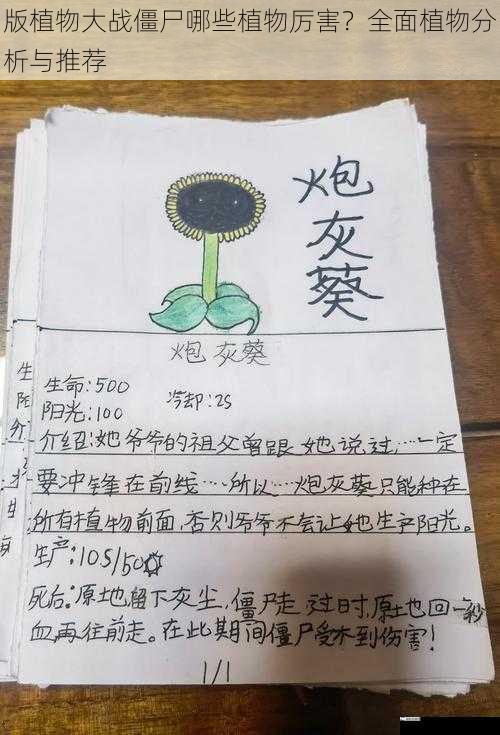 版植物大战僵尸哪些植物厉害？全面植物分
析与推荐
炮
灰
葵
炮灰葵
生命:500
阳光:100 冷却:2S
介绍:她爷爷的祖父曾跟她说过,……一定
要冲锋在前线……所以……炮灰葵只能种在
所有植物前面,否则爷爷不会让她生产阳光。
生产:10S/50
死后:原地留下灰尘,僵尸走过时,原土也回一秒
血再往前走。在此期间僵尸受不到伤害!
1/1
生
阳